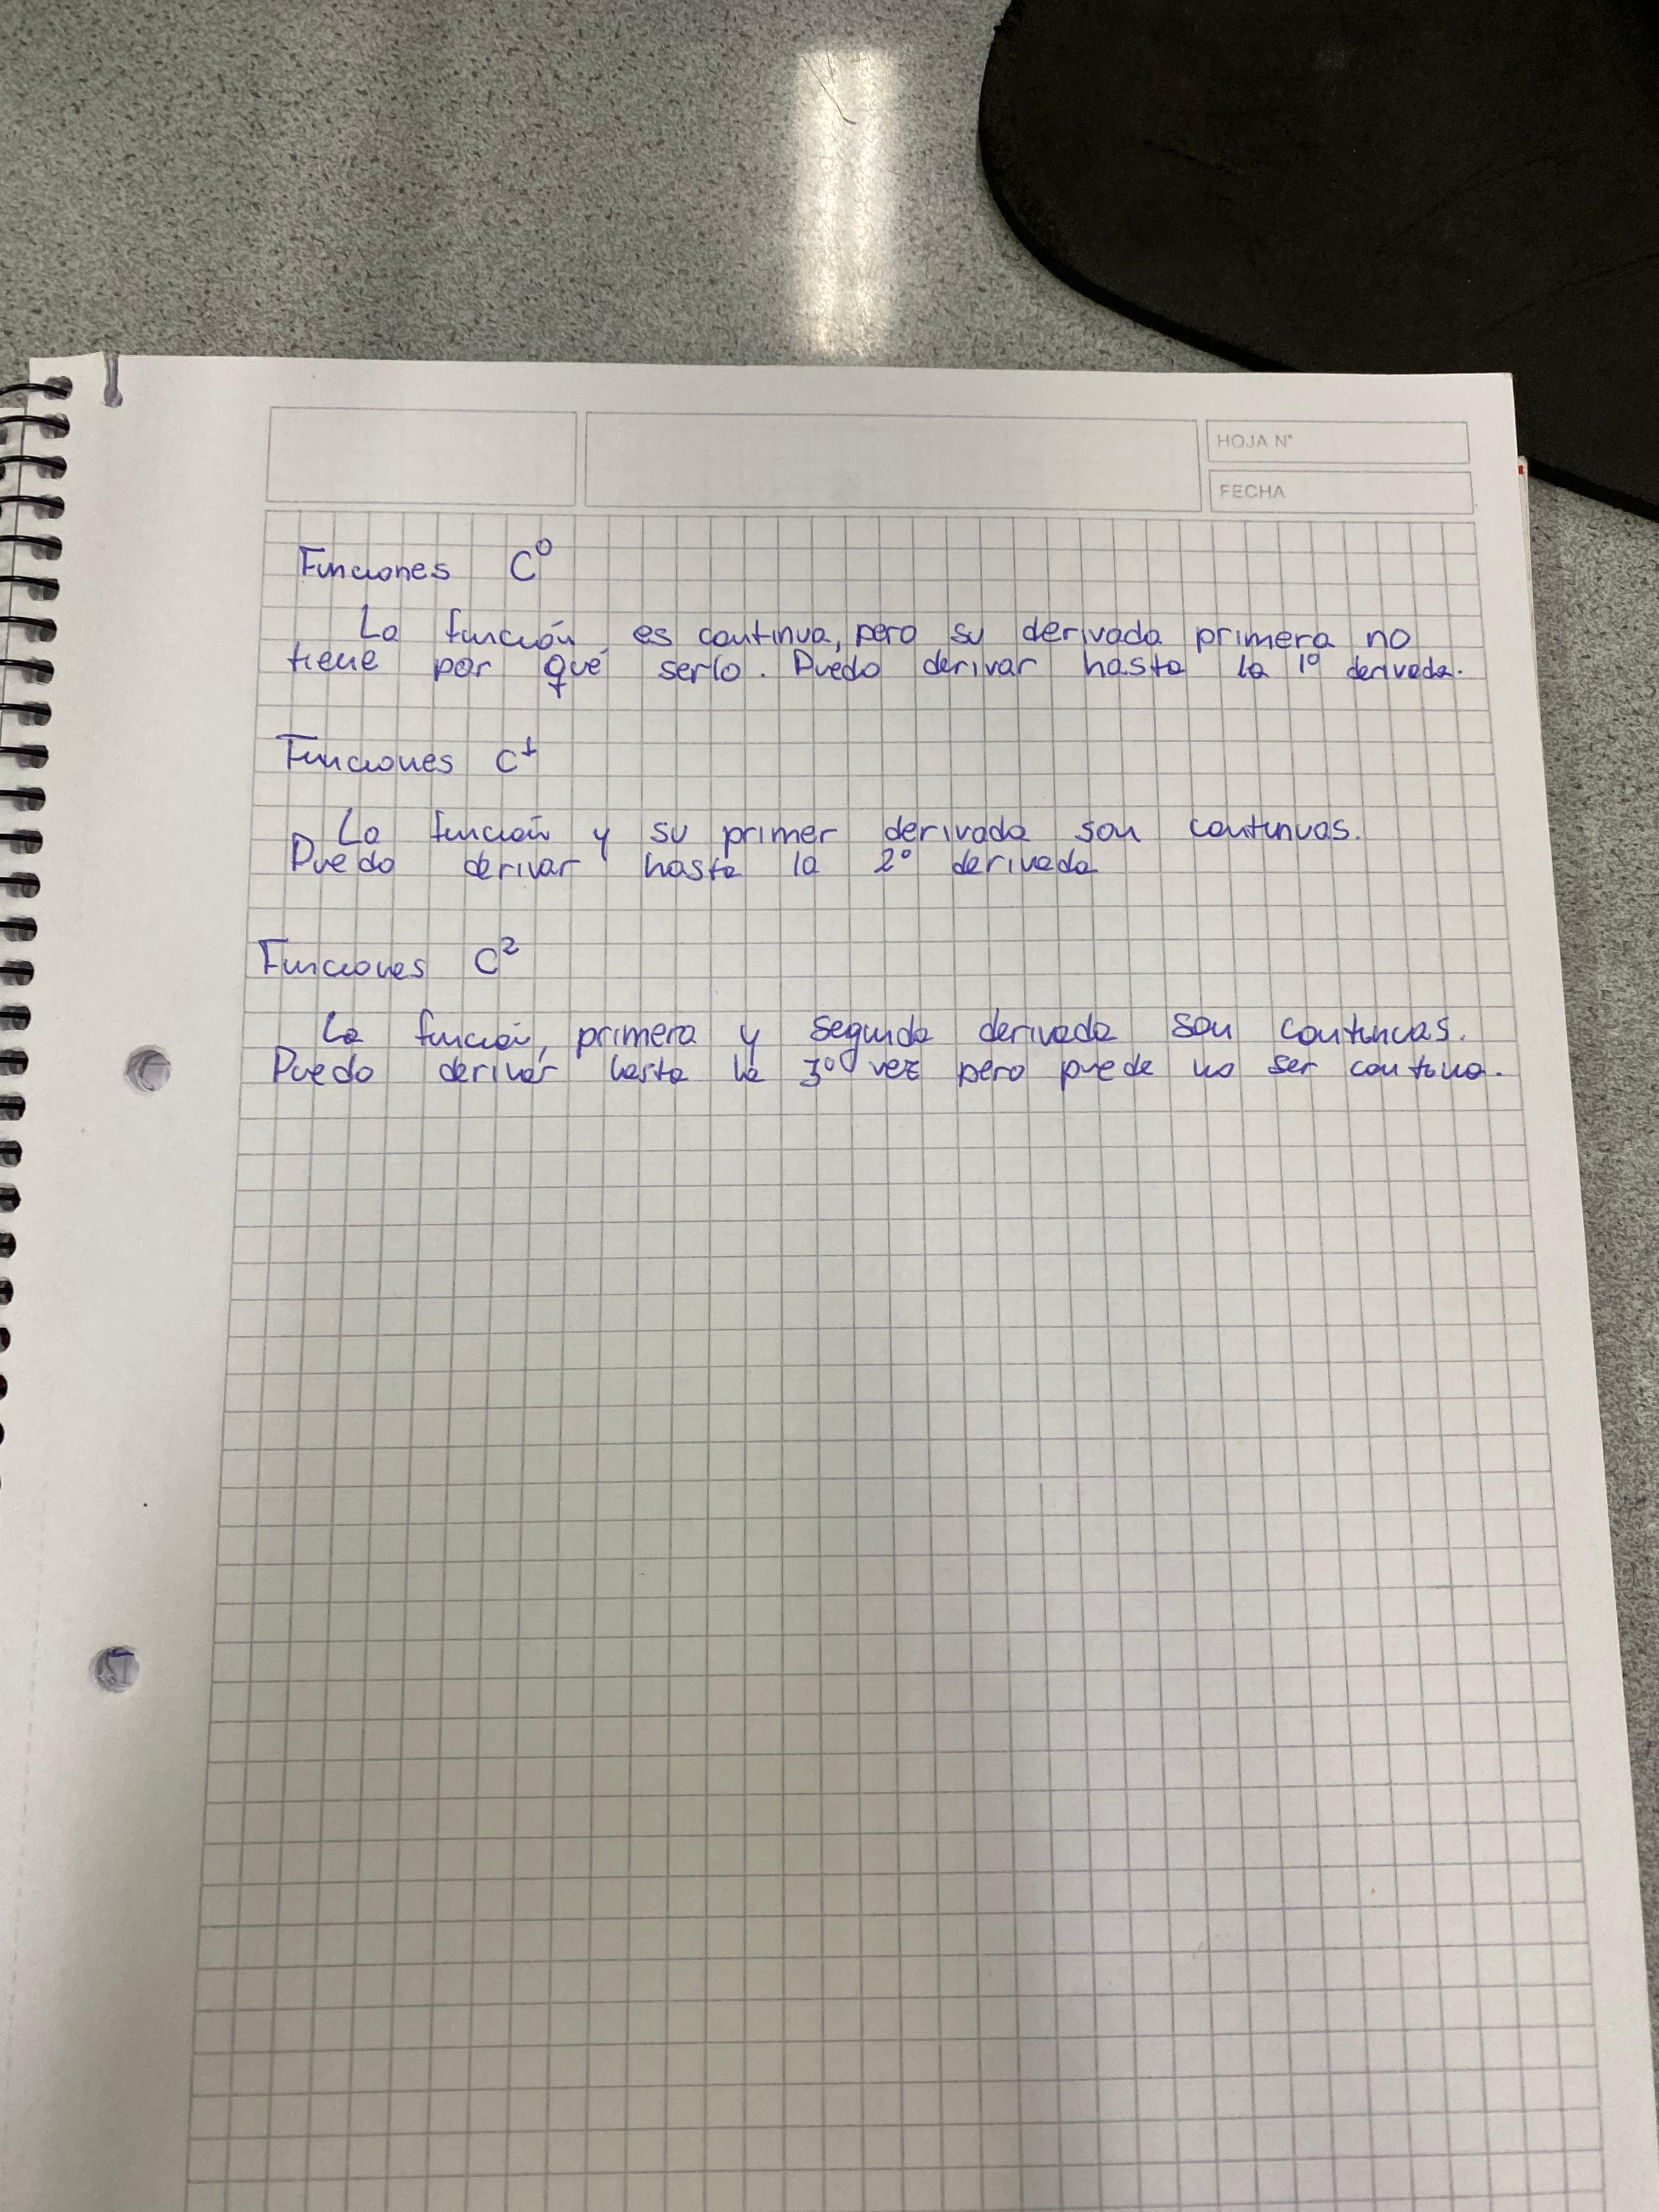 HOJA Nº
FECHA
Funciones C⁰
La función es continua, pero su derivada primera no
tiene por qué serlo. Puedo derivar hasta la 1º derivada.
Funciones C¹
La función y su primer derivada son continuas.
Puedo derivar hasta la 2º derivada
Funciones C²
La función, primera y segunda derivada son continuas.
Puedo derivar hasta la 3º vez pero puede no ser continua.